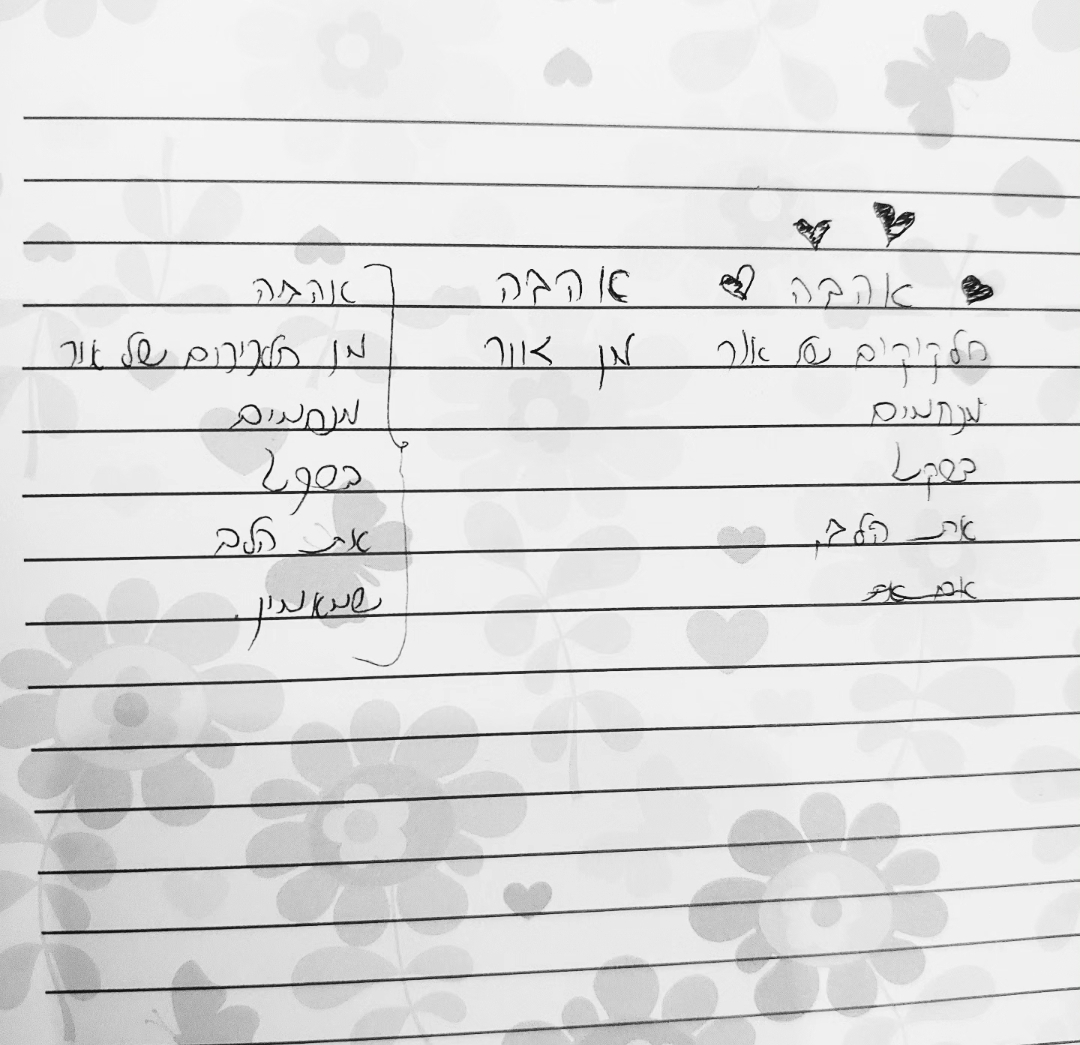 אהבה
חלקיקים של אור
מנחמים
בשקט
את הלב,
אהבה
מן אוור
אהבה
מן חלקיקים של אור
מנחמים
בשקט
את הלב
שמאמין.